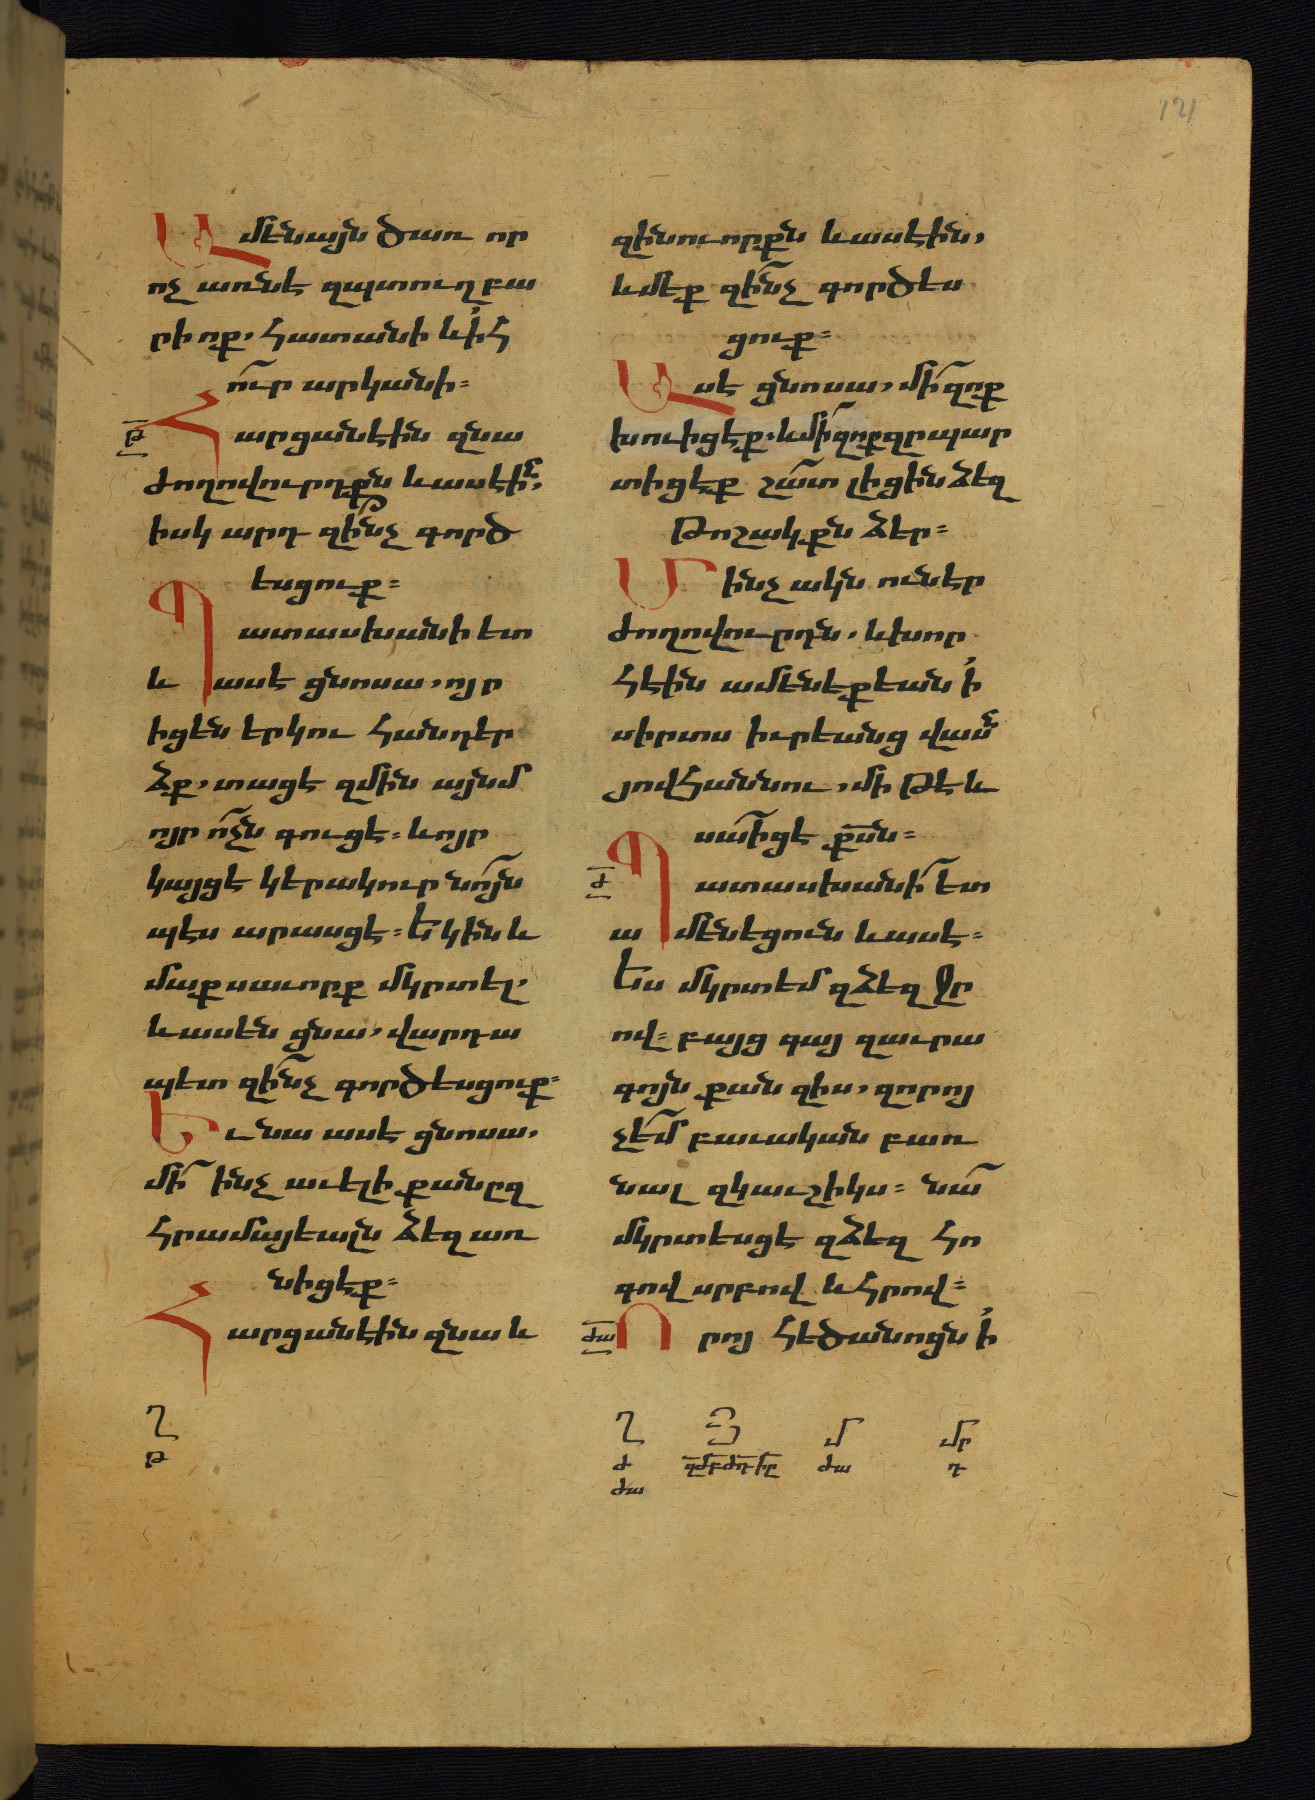 121
Ամենայն ծառ որ
ոչ առնէ զպտուղ բա
րի ոք, հատանի և ի հ
ուր արկանի։
թ
Հարցանէին զնա
ժողովուրդքն և ասէին,
իսկ արդ զինչ գործ
եսցուք։
Պատասխանի ետ
և ասէ ցնոսա, ոյր
իցեն երկու հանդեր
ձք, տացէ զմին այնմ
ոյր ոչն գուցէ։ և ոյր
կայցէ կերակուր նոյն
պէս արասցէ։ Եկին և
մաքսաւորք մկրտել,
և ասեն ցնա, վարդա
պետ զինչ գործեսցուք։
Եւ նա ասէ ցնոսա,
մի ինչ աւելի քան ըզ
հրամայեալն ձեզ առ
նիցէք։
Հարցանէին զնա և
զինուորքն և ասէին,
և մեք զինչ գործես
ցուք։
Ասէ ցնոսա, մի զոք
խռուիցէք. և մի զոք զըպար
տիցէք շատ լիցին ձեզ
Թոշակքն ձեր։
Մինչ ակն ունէր
ժողովուրդն, և խոր
հէին ամենեքեան ի
սիրտս իւրեանց վասն
յովհաննու, մի թէ և
սա իցէ քսն։
ժ
Պատասխանի ետ
ամենեցուն և ասէ։
Ես մկրտեմ զձեզ ջր
ով։ բայց գայ զաւրա
գոյն քան զիս, զորոյ
չեմ բաւական բառ
նալ զկաւշիկս։ նա
մկրտեսցէ զձեզ հո
գով սրբով և հրով։
ժա
Որոյ հեծանոցն ի
ղ
թ
ղ
մ
մր
ժ
ժա
դ
ժա